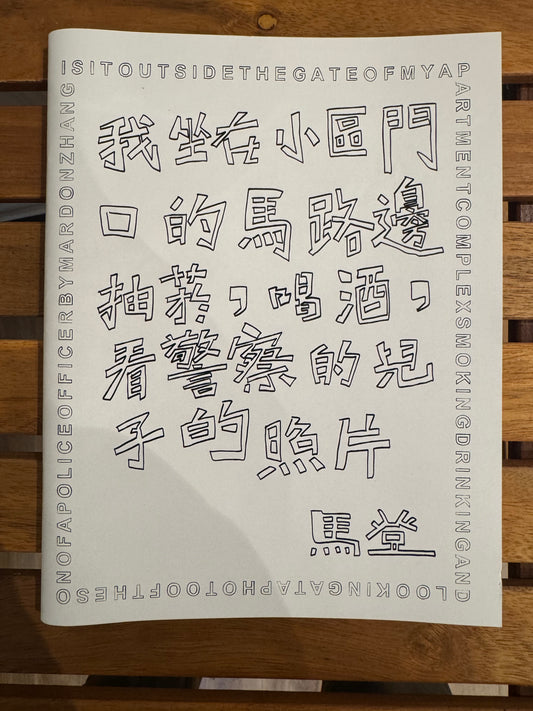 ISITOUTSIDETHEGATEOFMYAP
ARTMENTCOMPLEXSMOKINGDRINKINGAND
LOOKINGATAPHOTOOFTHES
ONOFAPOLICEOFFICERBYMARDONZHANG
我坐在小區門
口的馬路邊
抽菸,喝酒,
看警察的兒
子的照片
馬登